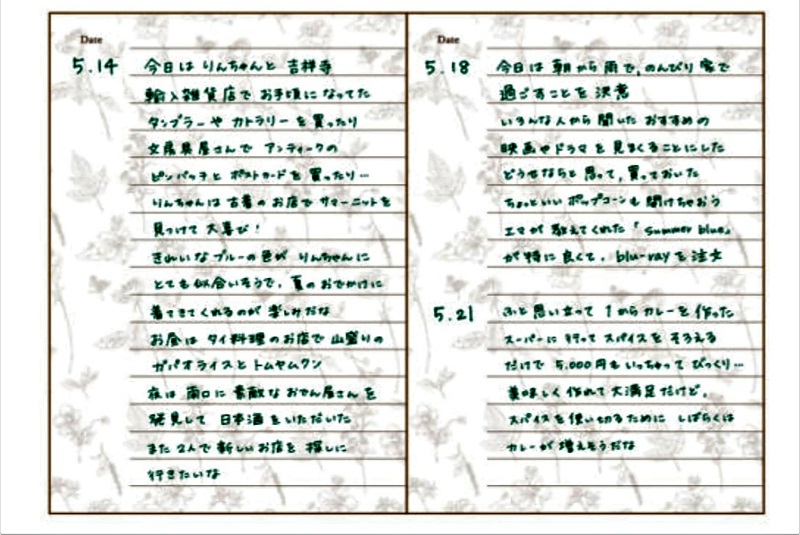 Date
5.14
今日は りんちゃんと 吉祥寺
輸入雑貨店で お手頃になってた
タンブラーや カトラリーを買ったり
文房具屋さんで アンティークの
ピンバッチと ポストカードを買ったり…
りんちゃんは 古着のお店で サマーニットを
見つけて 大喜び!
きれいなブルーの色が りんちゃんに
とても似合いそうで、夏のおでかけに
着てきてくれるのが 楽しみだな
お昼は タイ料理のお店で 山盛りの
ガパオライスと トムヤムクン
夜は 南口に 素敵な おでん屋さんを
発見して 日本酒をいただいた
また 2人で 新しいお店を 探しに
行きたいな
Date
5.18
今日は 朝から雨で、のんびり 家で
過ごすことを 決意
いろんな人から 聞いた おすすめの
映画やドラマを 見まくることにした
どうせならと 思って、買っておいた
ちょっといい ポップコーンも 開けちゃおう
エマが 教えてくれた「Summer blue」
が特に良くて、blu-rayを注文
5.21
ふと思い立って 1からカレーを作った
スーパーに 行って スパイスを そろえる
だけで 5,000円もいっちゃって びっくり…
美味しく 作れて 大満足だけど、
スパイスを使い切るために しばらくは
カレーが 増えそうだな